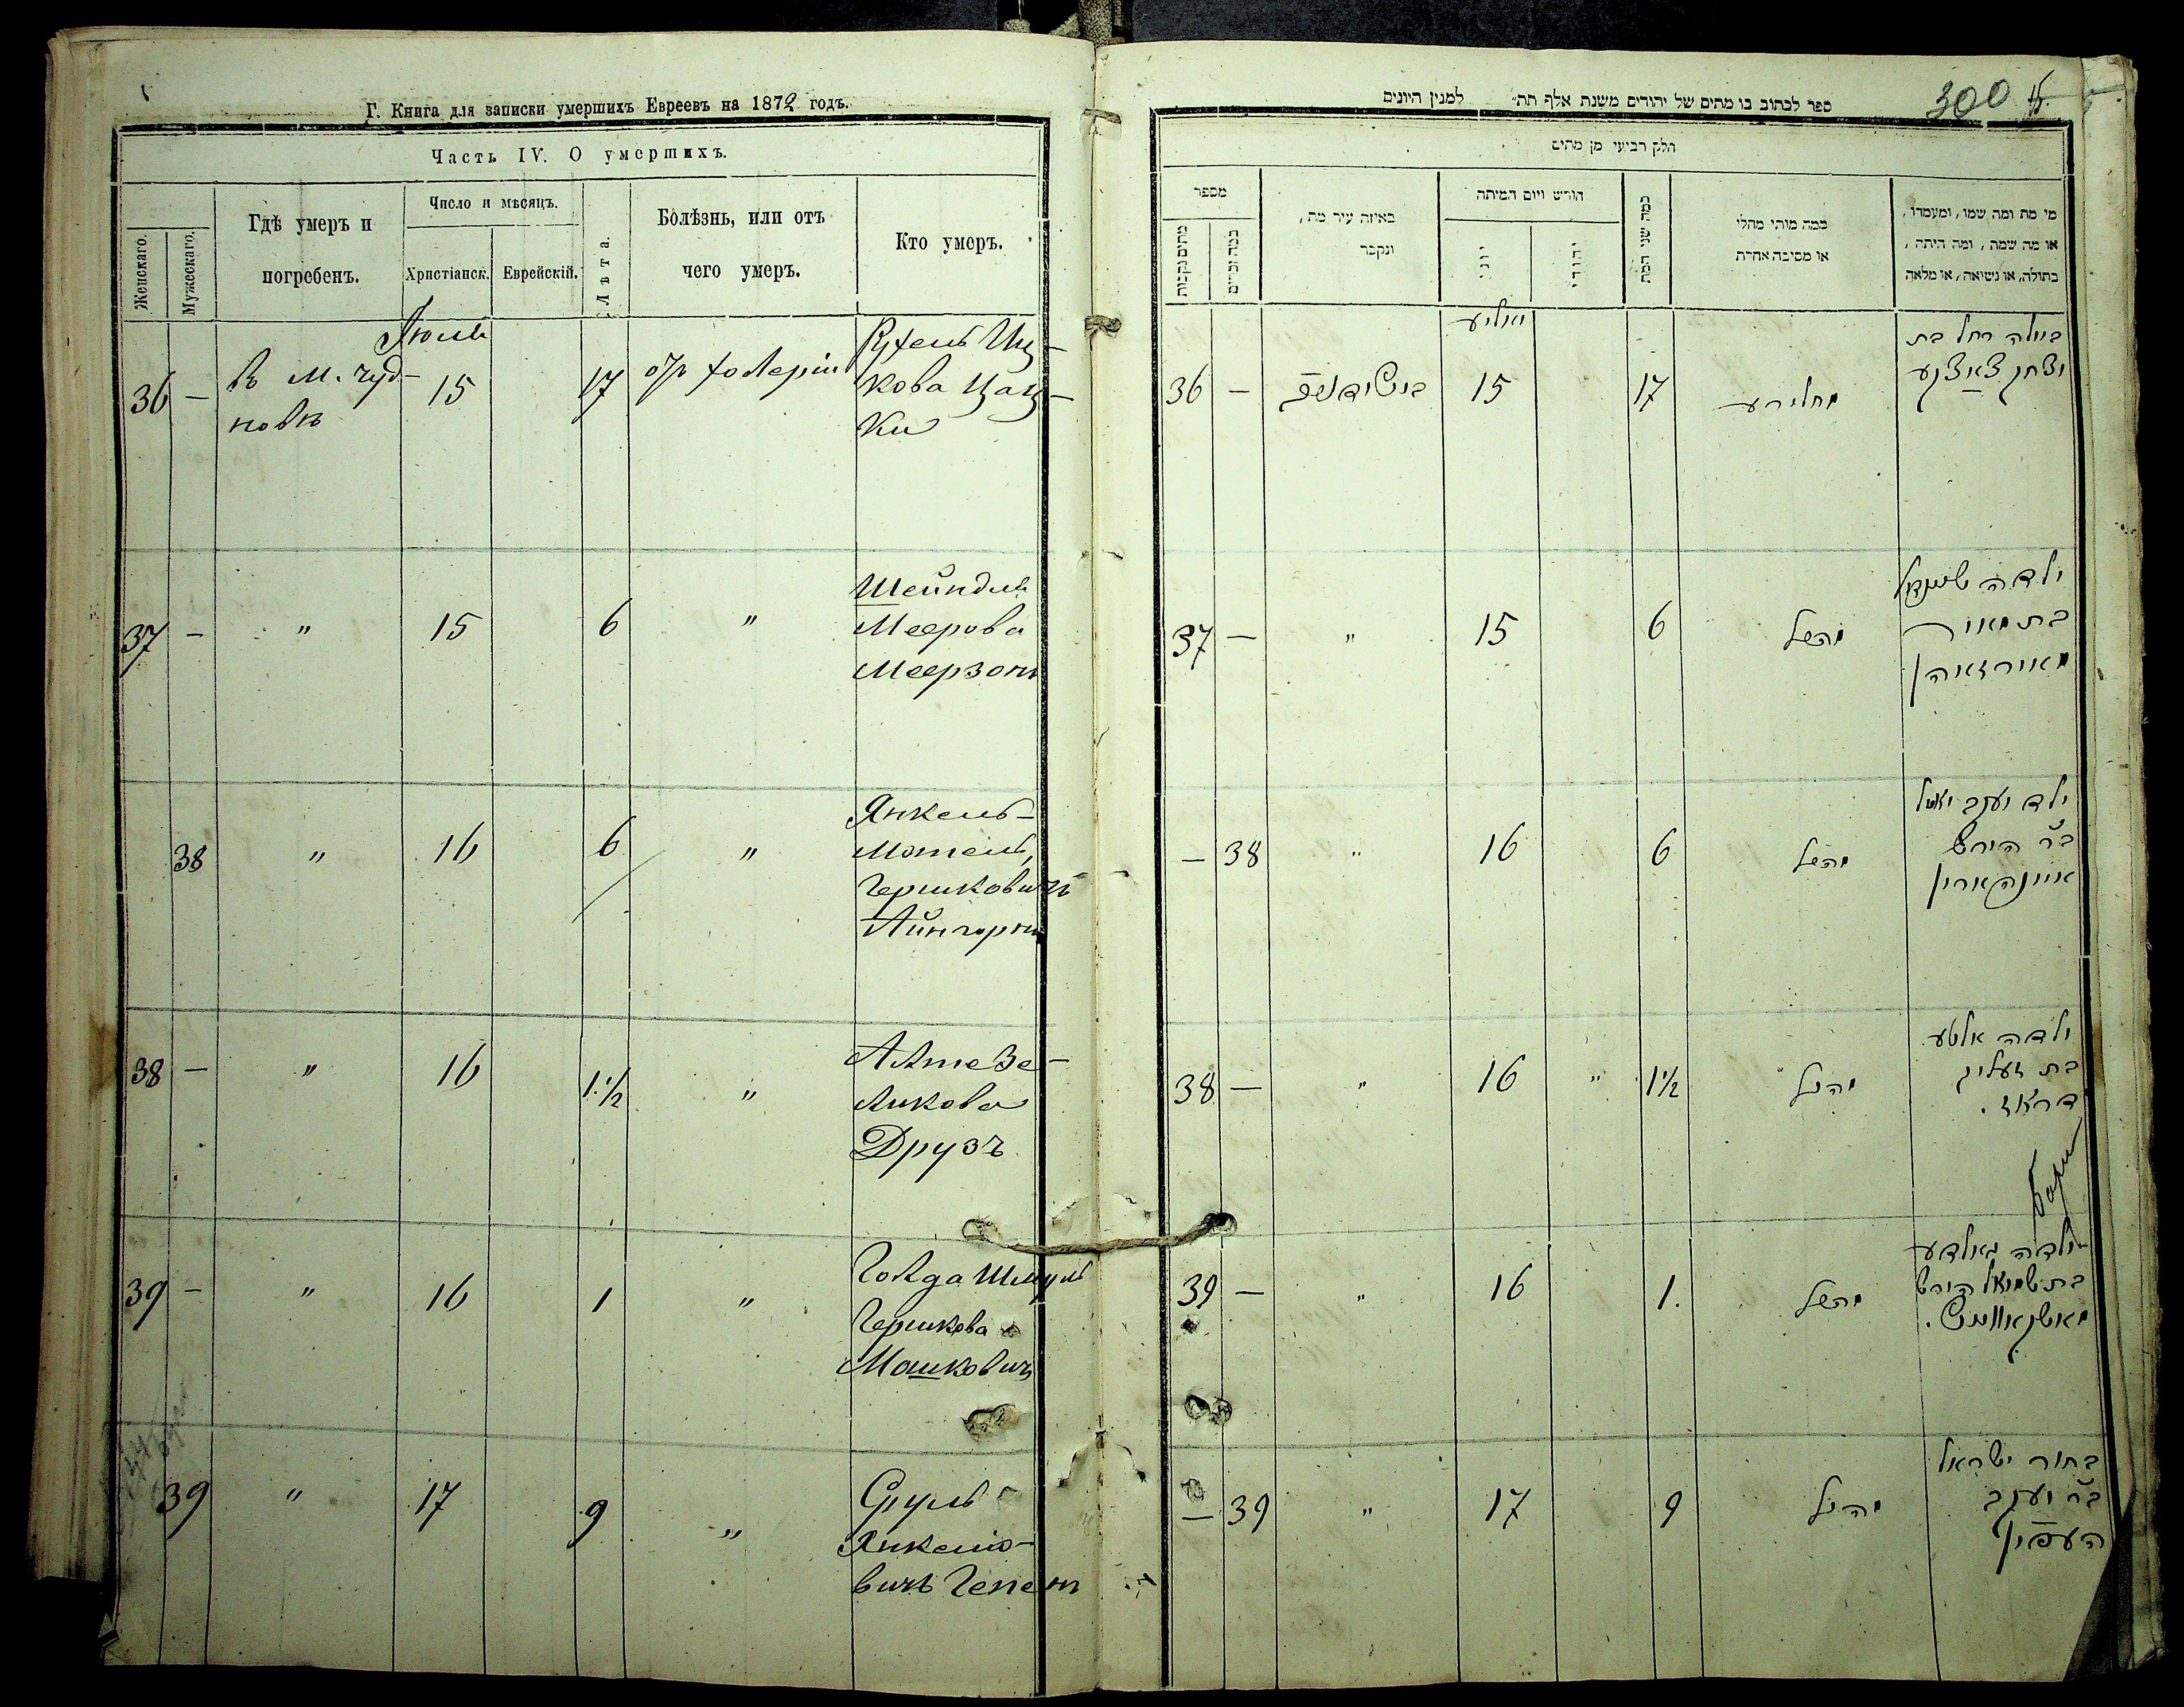 Г. Книга для записки умершихъ Евреевъ на 1872 годъ.
Часть IV. О умершихъ.
Женскаго.
Мужескаго.
Гдѣ умеръ и
погребенъ.
Число и мѣсяцъ.
Христіанск.
Еврейскій.
Лѣта.
Болѣзнь, или отъ
чего умеръ.
Кто умеръ.
Іюль
36 — в м. Чуд-
новѣ
15
17
Кова Цац-
ки
37 — " 15 6 "
Шейндля
Меерова
Меерзонъ
38 " 16 6 "
Янкель-
Мотель
Гершковичъ
Айнгорнъ
38 — " 16 1 1/2 "
Алте Зе-
ликова
Друзъ
39 — " 16 1 "
Голда Шмуль
Гершкова
Машковичъ
39 " 17 9 "
Сруль
Янкелио-
вичъ
ספר לכתוב בו מתים של יהודים משנת אלף תת למנין היונים
300
חלק רביעי מן מתים
מספר
מתים נקבות
כמה זכרים
באיזה עיר מת,
ונקבר
חודש ויום המיתה
יוני
יהודי
כמה שני המת
במה מותי מחלי
או מסיבה אחרת
מי מת ומה שמו, ומעמדו,
או מה שמה, ומה היתה,
בתולה, או נשואה, או מלאה
36 — 15 17
רחל בת
יצחק
37 — " 15 6
ילדה שיינדל
בת מאיר
מאירזאהן
— 38 " 16 6
ילד יעקב
בר הירש
איינהארין
38 — " 16 " 1 1/2
ילדה אלטע
בת זעליג
דראז.
39 — " 16 1.
ילדה גאלדע
בת שמואל הירש
מאשקאוויטש.
— 39 " 17 9
בחור ישראל
בר יעקב